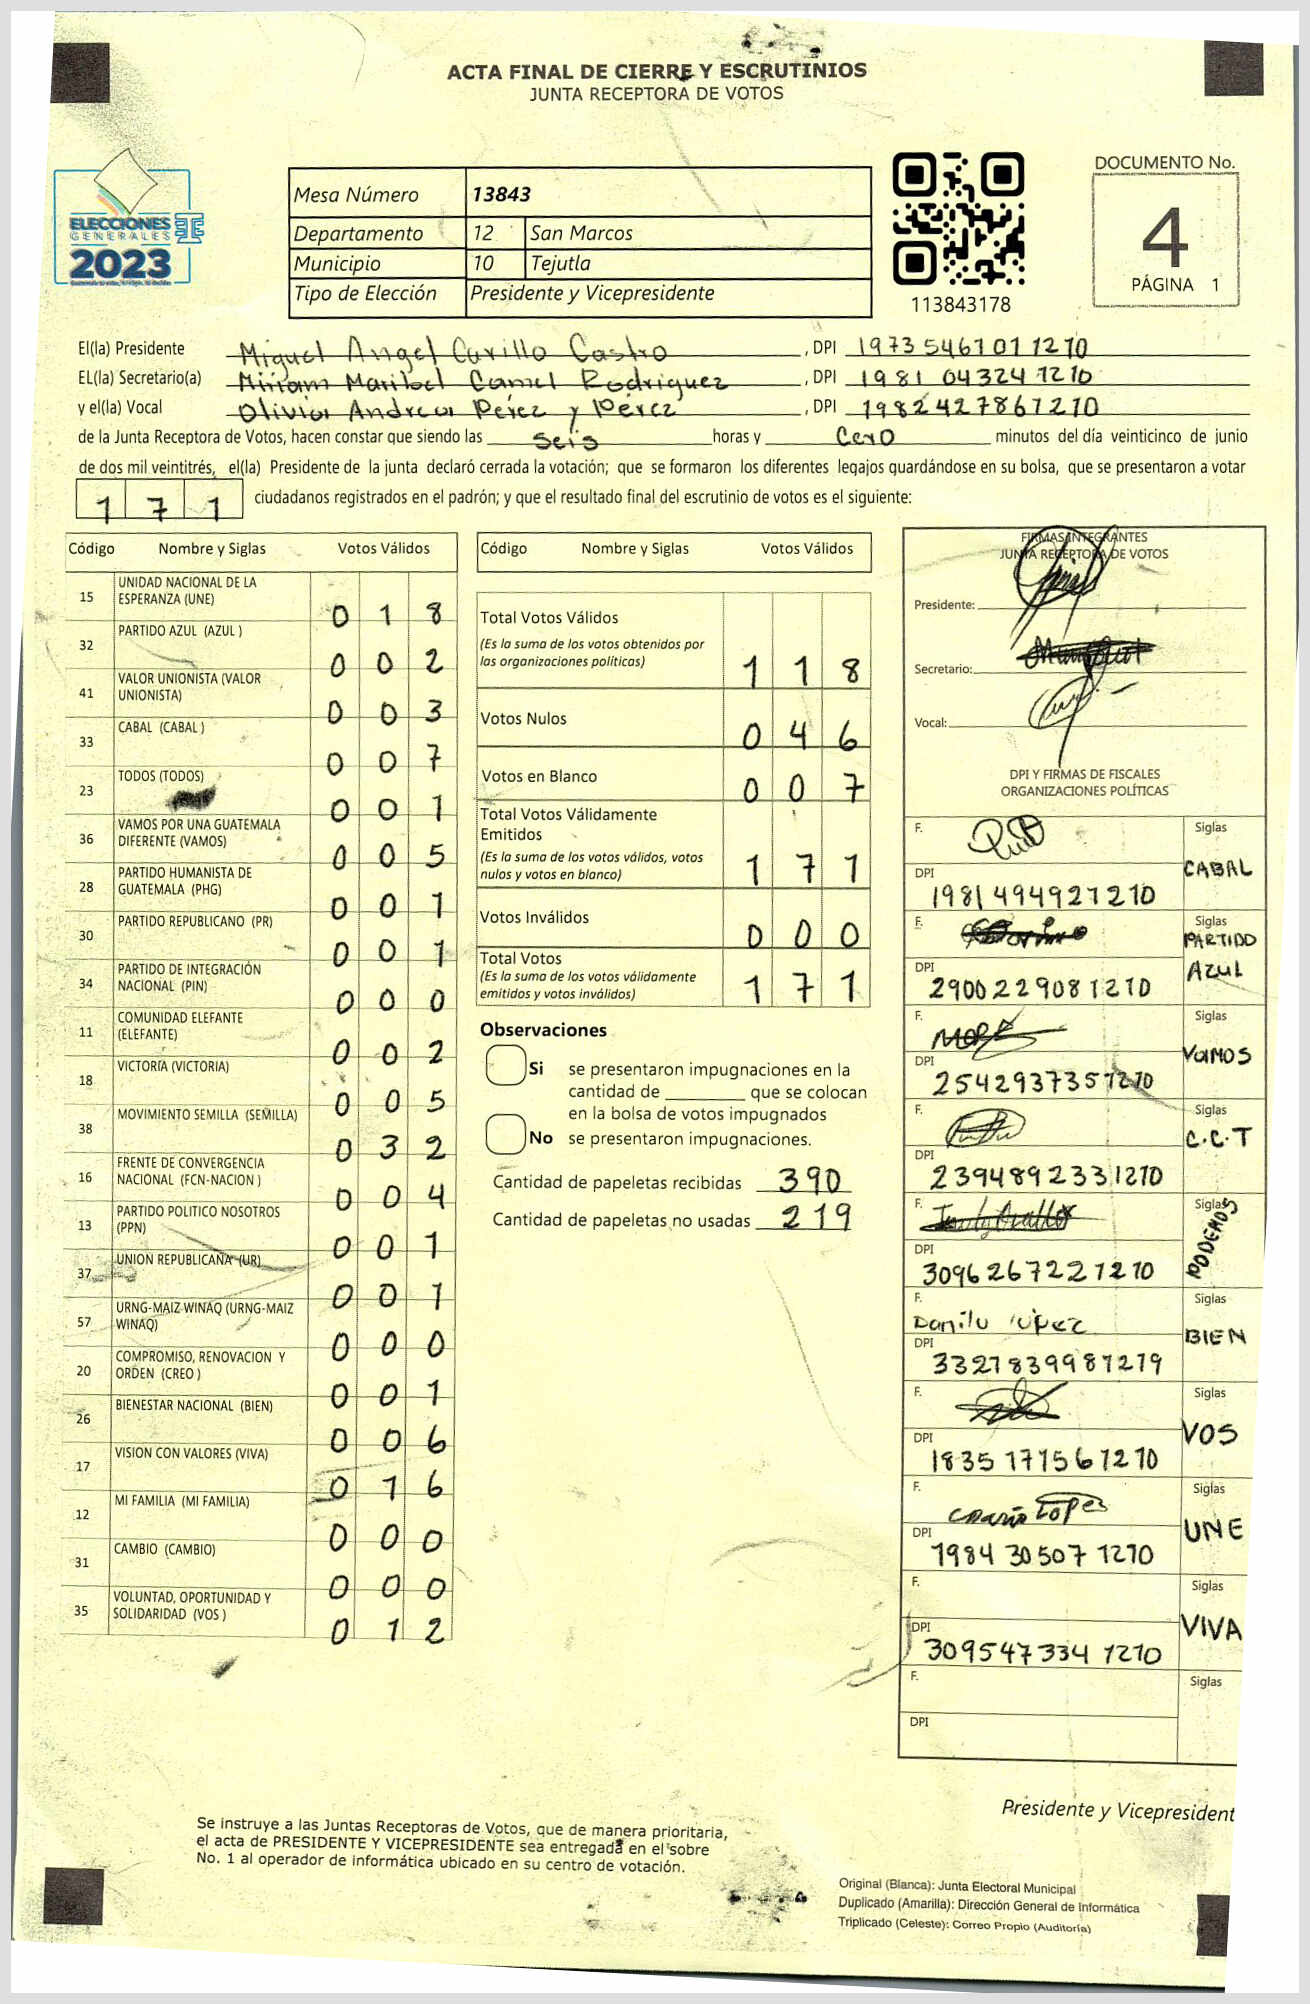 ACTA FINAL DE CIERRE Y ESCRUTINIOS
JUNTA RECEPTORA DE VOTOS
ELECCIONES
GENERALES
2023
Mesa Número 13843
Departamento 12 San Marcos
Municipio 10 Tejutla
Tipo de Elección Presidente y Vicepresidente
113843178
DOCUMENTO No.
4
PÁGINA 1
El(la) Presidente Miguel Angel Carillo Castro, DPI 1973 5461 01 1210
EL(la) Secretario(a) Miriam Maribel Camel Rodriguez, DPI 1981 04324 1210
y el(la) Vocal Olivia Andrea Pérez y Pérez, DPI 1982427861210
de la Junta Receptora de Votos, hacen constar que siendo las seis horas y cero minutos del día veinticinco de junio
de dos mil veintitrés, el(la) Presidente de la junta declaró cerrada la votación; que se formaron los diferentes legajos guardándose en su bolsa, que se presentaron a votar
171 ciudadanos registrados en el padrón; y que el resultado final del escrutinio de votos es el siguiente:
Código Nombre y Siglas Votos Válidos
15 UNIDAD NACIONAL DE LA ESPERANZA (UNE) 018
32 PARTIDO AZUL (AZUL ) 002
41 VALOR UNIONISTA (VALOR UNIONISTA) 003
33 CABAL (CABAL ) 007
23 TODOS (TODOS) 001
36 VAMOS POR UNA GUATEMALA DIFERENTE (VAMOS) 005
28 PARTIDO HUMANISTA DE GUATEMALA (PHG) 001
30 PARTIDO REPUBLICANO (PR) 001
34 PARTIDO DE INTEGRACIÓN NACIONAL (PIN) 000
11 COMUNIDAD ELEFANTE (ELEFANTE) 002
18 VICTORIA (VICTORIA) 005
38 MOVIMIENTO SEMILLA (SEMILLA) 032
16 FRENTE DE CONVERGENCIA NACIONAL (FCN-NACION ) 004
13 PARTIDO POLITICO NOSOTROS (PPN) 001
37 UNION REPUBLICANA (UR) 001
57 URNG-MAIZ WINAQ (URNG-MAIZ WINAQ) 000
20 COMPROMISO, RENOVACION Y ORDEN (CREO ) 001
26 BIENESTAR NACIONAL (BIEN) 006
17 VISION CON VALORES (VIVA) 016
12 MI FAMILIA (MI FAMILIA) 000
31 CAMBIO (CAMBIO) 000
35 VOLUNTAD, OPORTUNIDAD Y SOLIDARIDAD (VOS ) 012
Código Nombre y Siglas Votos Válidos
Total Votos Válidos
(Es la suma de los votos obtenidos por
las organizaciones políticas) 118
Votos Nulos 046
Votos en Blanco 007
Total Votos Válidamente
Emitidos
(Es la suma de los votos válidos, votos
nulos y votos en blanco) 171
Votos Inválidos 000
Total Votos
(Es la suma de los votos válidamente
emitidos y votos inválidos) 171
Observaciones
Si se presentaron impugnaciones en la
cantidad de ________ que se colocan
en la bolsa de votos impugnados
No se presentaron impugnaciones.
Cantidad de papeletas recibidas 390
Cantidad de papeletas no usadas 219
FIRMAS INTEGRANTES
JUNTA RECEPTORA DE VOTOS
Presidente:
Secretario:
Vocal:
DPI Y FIRMAS DE FISCALES
ORGANIZACIONES POLÍTICAS
F. Siglas
CABAL
DPI
1981494921210
F. Siglas
PARTIDO
AZUL
DPI
2900229081210
F. Siglas
VAMOS
DPI
2542937351210
F. Siglas
C.C.T
DPI
2394892331210
F. Siglas
PODEMOS
DPI
3096267221210
F. Danilo López Siglas
BIEN
DPI
3321839981219
F. Siglas
VOS
DPI
1835171561210
F. López Siglas
UNE
DPI
1984305071210
F. Siglas
VIVA
DPI
3095473341210
F. Siglas
DPI
Presidente y Vicepresident
Se instruye a las Juntas Receptoras de Votos, que de manera prioritaria,
el acta de PRESIDENTE Y VICEPRESIDENTE sea entregada en el sobre
No. 1 al operador de informática ubicado en su centro de votación.
Original (Blanca): Junta Electoral Municipal
Duplicado (Amarilla): Dirección General de Informática
Triplicado (Celeste): Correo Propio (Auditoría)